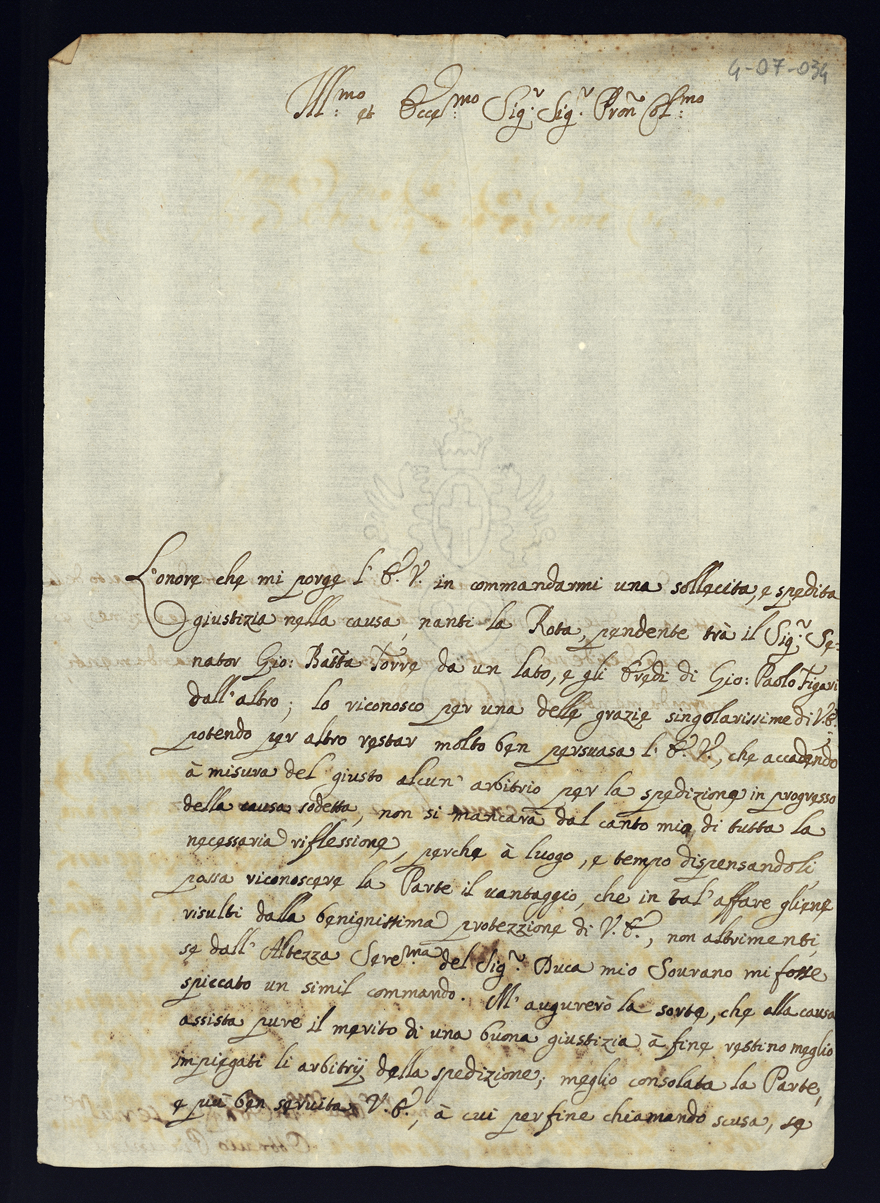 4-07-034
Ill:mo et Ecce:mo Sig:r Sig:r Pron Col:mo
L'onore che mi porge l'E.V. in commandarmi una sollecita, e spedita
giustizia nella causa, nanti la Rota, pendente trà il Sig:r Se-
nator Gio: Batta Torre da un lato, e gli Eredi di Gio: Paolo Figari
dall'altro; lo riconosco per una delle grazie singolarissime di V.E.,
potendo per altro restar molto ben persuasa l'E.V., che accadendo
à misura del giusto alcun' arbitrio per la spedizione in progresso
della causa sodetta, non si mancarà dal canto mio di tutta la
necessaria riflessione, perche à luogo, e tempo dispensandoli
possa riconoscere la Parte il vantaggio, che in tal'affare gliene
risulti dalla benignissima protezzione di V.E., non altrimenti,
se dall'Altezza Sere:ma del Sig:r Duca mio Sourano mi fosse
spiccato un simil commando. M'augurerò la sorte, che alla causa
assista pure il merito di una buona giustizia à fine restino meglio
impiegati li arbitrij della spedizione; meglio consolata la Parte,
e più ben servita V.E., à cui perfine chiamando scusa, se